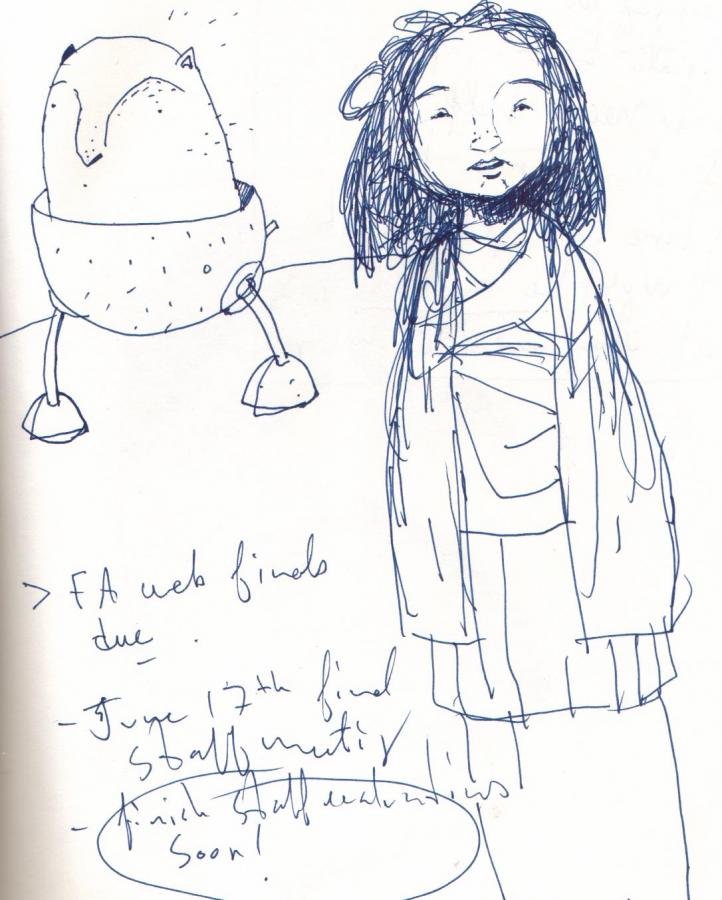 > FA web finals
due
- June 17th final
staff meeting
- finish staff evaluations
soon!